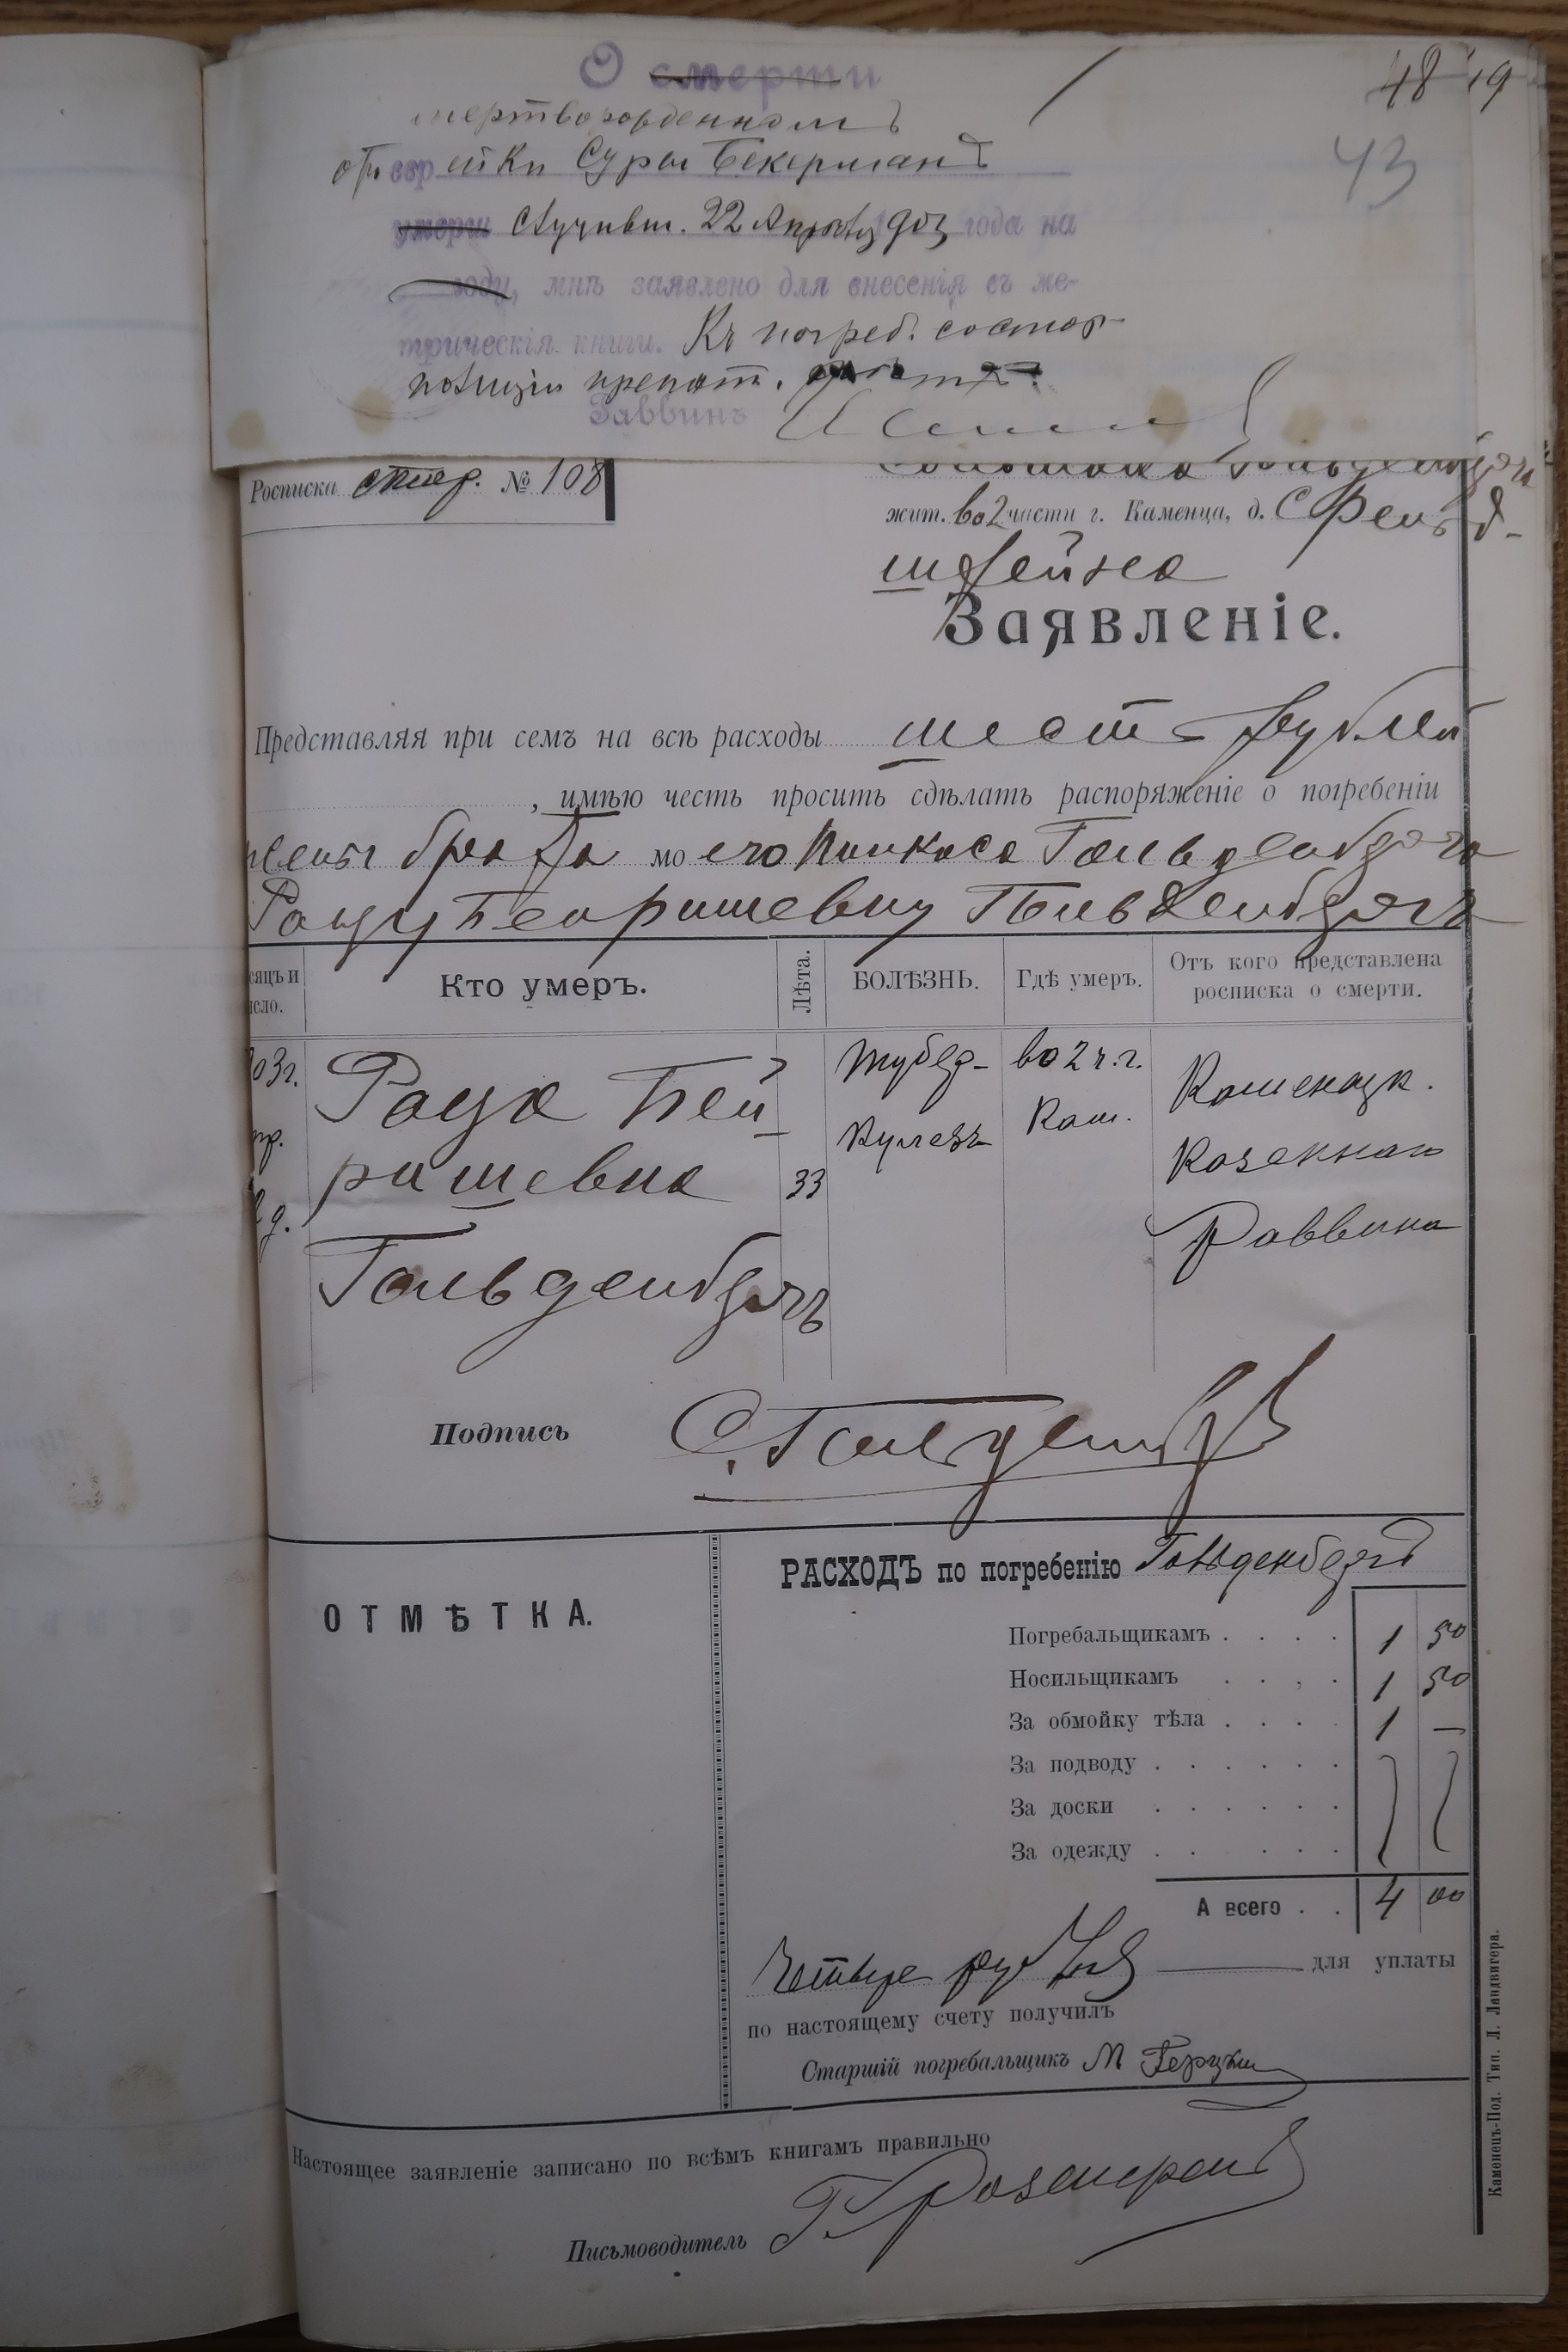 О смерти
48 19
мертворожденномъ
43
отъ евр ейки Суры Бекерманъ
умерш случивш. 22 Апрѣля 903 года на
году, мнѣ заявлено для внесенія въ ме-
трическія книги. Къ погреб. со стор
полиціи препят.
Раввинъ
Росписка № 108
жит. во 2 части г. Каменца, д. С Рейнъ
штейна
Заявленіе.
Представляя при семъ на всѣ расходы шесть рублей
, имѣю честь просить сдѣлать распоряженіе о погребеніи
жены брата моего Пинкаса Гольденберга
Рацу Бейришевну Гольденбергъ
сяцъ и
исло.
Кто умеръ.
Лѣта.
БОЛѢЗНЬ.
Гдѣ умеръ.
Отъ кого представлена
росписка о смерти.
03 г.
Раца Бей-
ришевна
Гольденбергъ
33
Тубер-
кулезъ
во 2 ч. г.
Кам.
Каменецк.
Казеннаго
Раввина
Подпись С. Гольденбергъ
ОТМѢТКА.
РАСХОДЪ по погребенію Гольденбергъ
Погребальщикамъ . . . . 1 50
Носильщикамъ . . . . 1 50
За обмойку тѣла . . . . 1 —
За подводу . . . . . .
За доски . . . . . .
За одежду . . . . . .
А всего . . 4 00
Четыре рублей для уплаты
по настоящему счету получилъ
Старшій погребальщикъ М Герцкин
Настоящее заявленіе записано по всѣмъ книгамъ правильно
Письмоводитель Г. Розенгренъ
Каменецъ-Под. Тип. Л. Ландвигера.